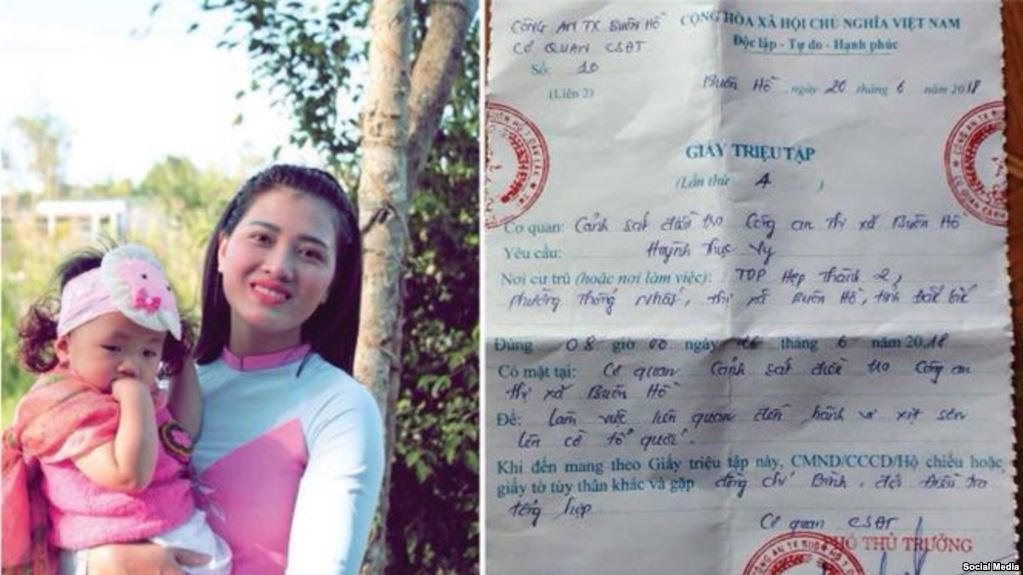 CÔNG AN TX BUÔN HỒ
CƠ QUAN CSĐT
Số: 10
(Liên 2)
CỘNG HÒA XÃ HỘI CHỦ NGHĨA VIỆT NAM
Độc lập - Tự do - Hạnh phúc
Buôn Hồ, ngày 20 tháng 6 năm 2018
GIẤY TRIỆU TẬP
(Lần thứ )
Cơ quan: Cảnh sát điều tra Công an thị xã Buôn Hồ
Yêu cầu: Huỳnh Thục Vy
Nơi cư trú (hoặc nơi làm việc): TDP Hợp Thành 2,
phường Thống Nhất, thị xã Buôn Hồ, tỉnh Đắk Lắk
Đúng 08 giờ 00 ngày tháng 6 năm 2018
Có mặt tại: Cơ quan Cảnh sát điều tra Công an
thị xã Buôn Hồ
Để: Làm việc liên quan đến hành vi xịt sơn
lên cờ tổ quốc.
Khi đến mang theo Giấy triệu tập này, CMND/CCCD/Hộ chiếu hoặc
giấy tờ tùy thân khác và gặp đồng chí Bình, đội Điều tra
tổng hợp
Cơ quan CSĐT
PHÓ THỦ TRƯỞNG
Social Media